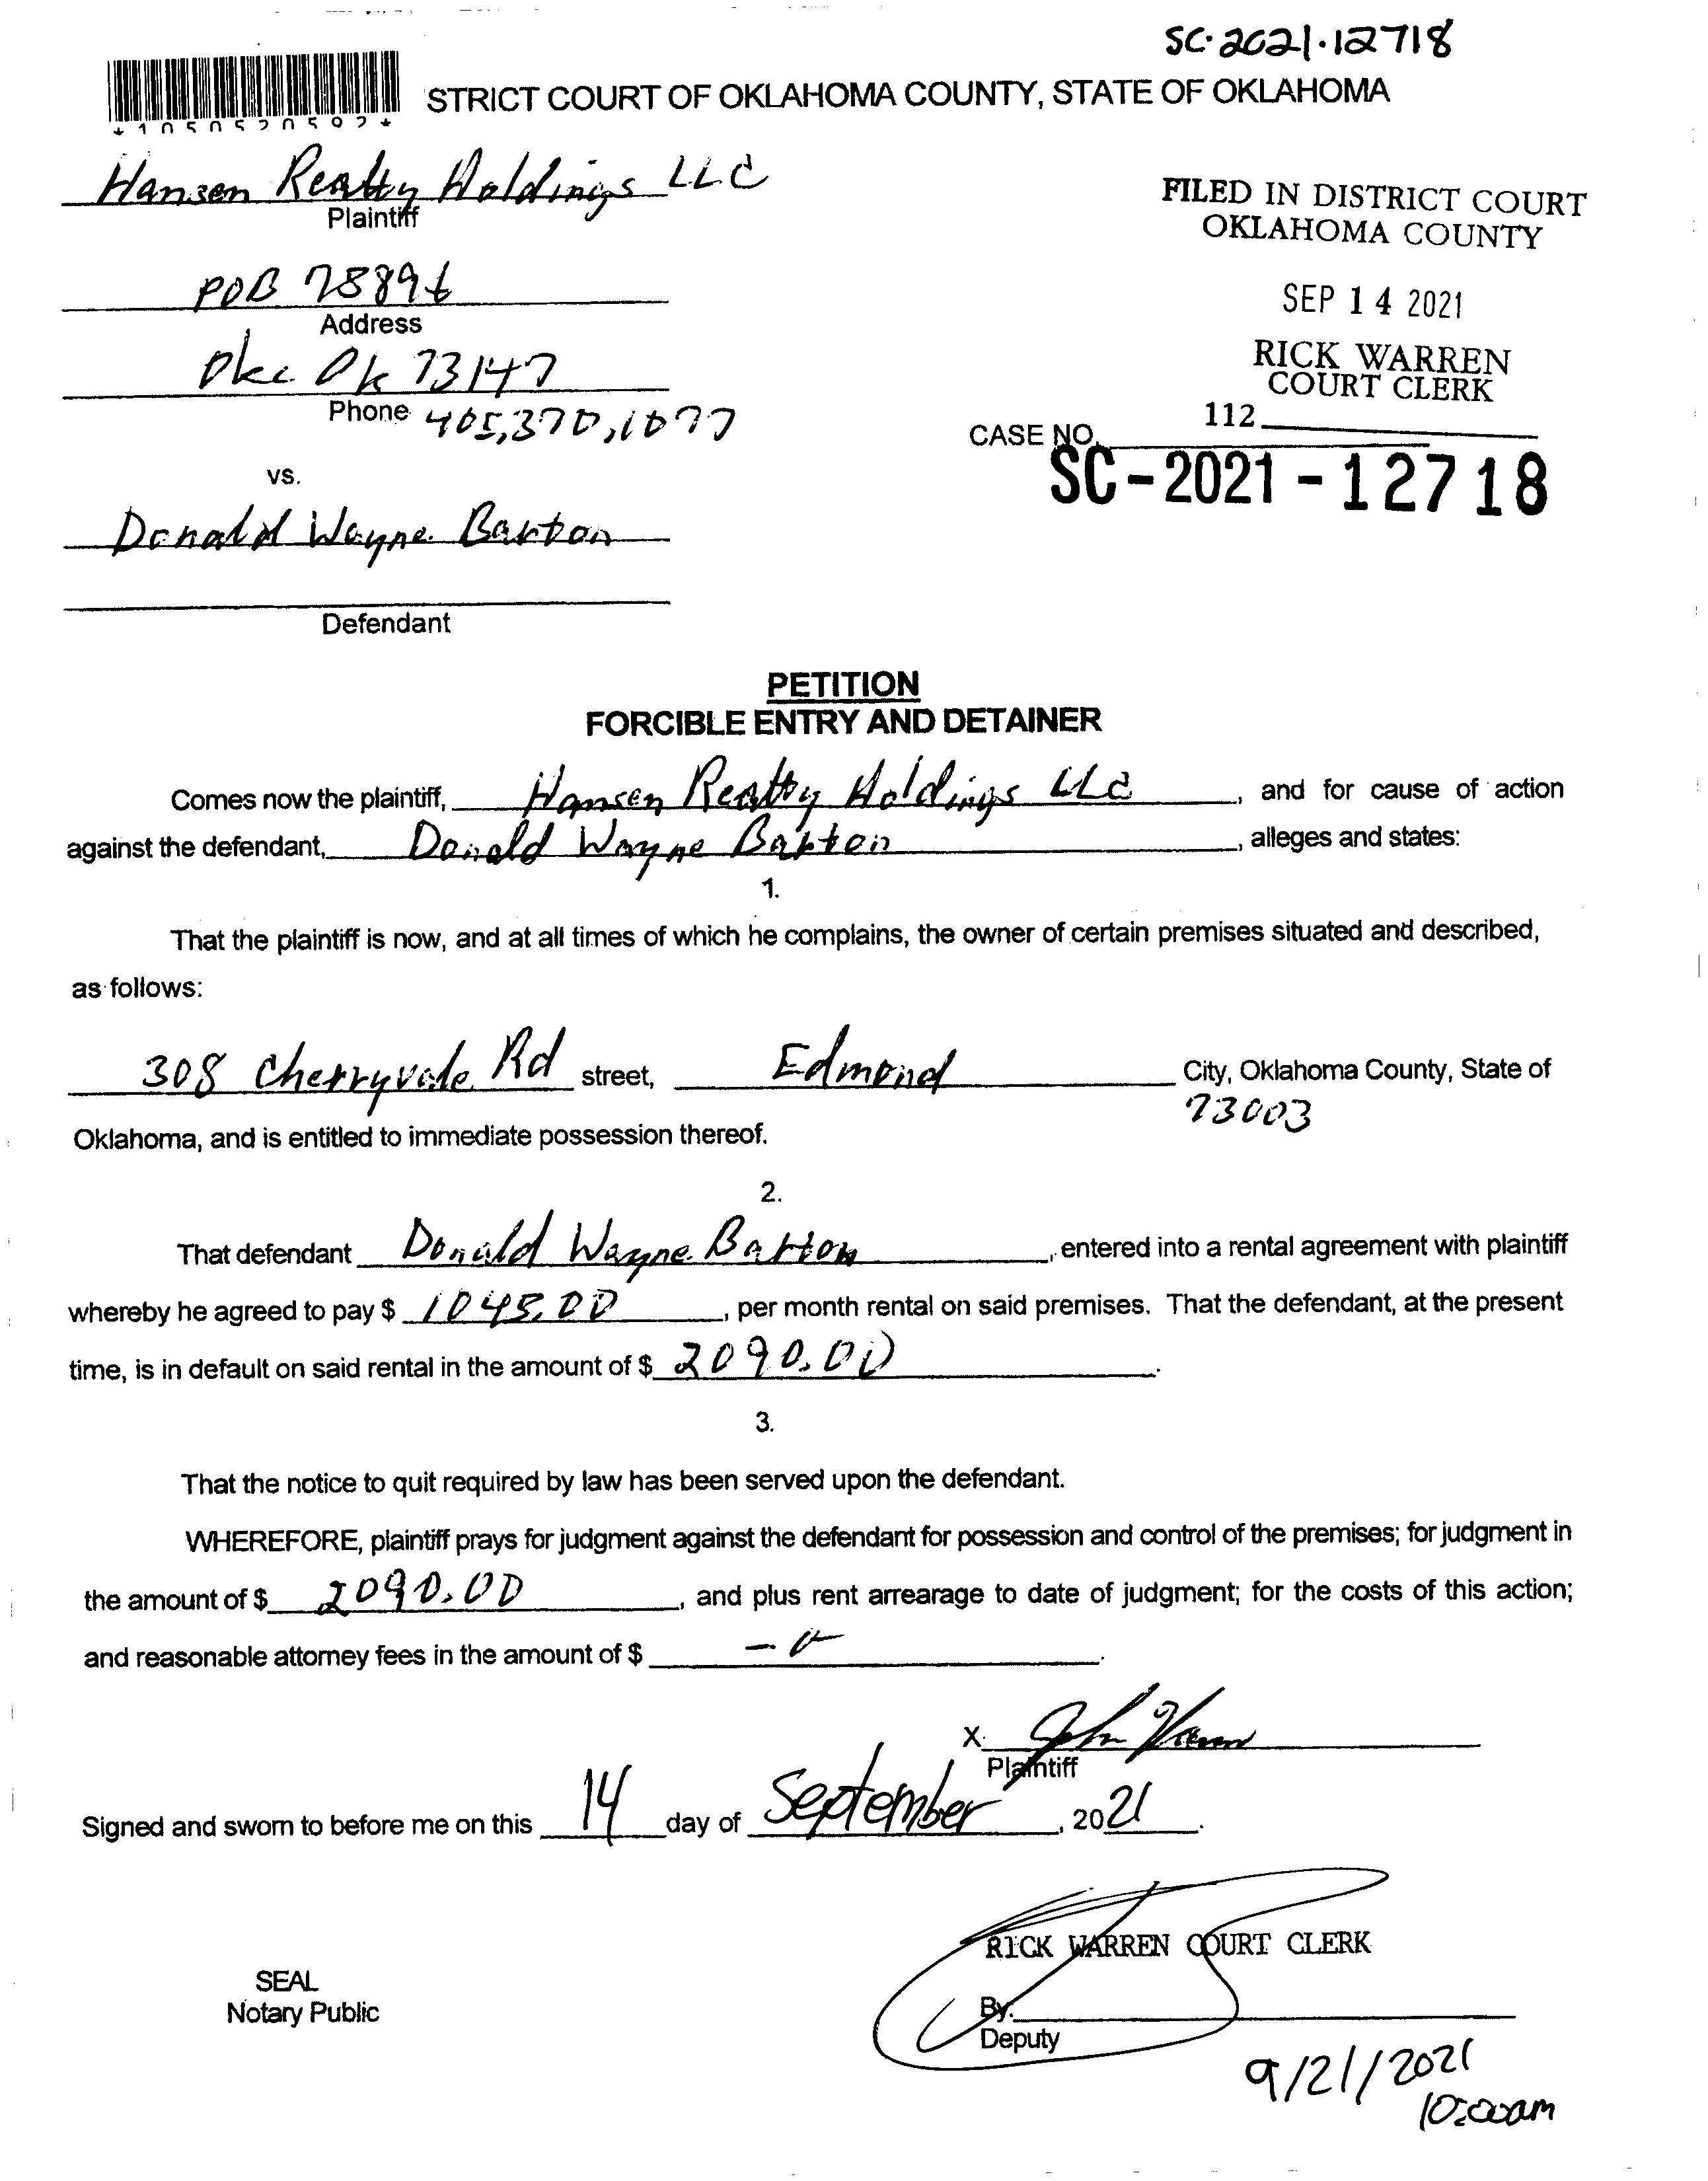 SC·2021·12718
STRICT COURT OF OKLAHOMA COUNTY, STATE OF OKLAHOMA
*1050520592*
Hansen Realty Holdings LLC
Plaintiff
FILED IN DISTRICT COURT
OKLAHOMA COUNTY
POB 78896
Address
SEP 14 2021
Okc Ok 73147
RICK WARREN
COURT CLERK
Phone 405,370,1077
112
CASE NO.
SC-2021-12718
vs.
Donald Wayne Barton
Defendant
PETITION
FORCIBLE ENTRY AND DETAINER
Comes now the plaintiff, Hansen Realty Holdings LLC, and for cause of action
against the defendant, Donald Wayne Barton, alleges and states:
1.
That the plaintiff is now, and at all times of which he complains, the owner of certain premises situated and described,
as follows:
308 Cherryvale Rd street, Edmond City, Oklahoma County, State of
73003
Oklahoma, and is entitled to immediate possession thereof.
2.
That defendant Donald Wayne Barton, entered into a rental agreement with plaintiff
whereby he agreed to pay $ 1045.00, per month rental on said premises. That the defendant, at the present
time, is in default on said rental in the amount of $ 2090.00.
3.
That the notice to quit required by law has been served upon the defendant.
WHEREFORE, plaintiff prays for judgment against the defendant for possession and control of the premises; for judgment in
the amount of $ 2090.00, and plus rent arrearage to date of judgment; for the costs of this action;
and reasonable attorney fees in the amount of $ -0-.
X John Hansen
Plaintiff
Signed and sworn to before me on this 14 day of September, 2021.
RICK WARREN COURT CLERK
SEAL
Notary Public
By.
Deputy
9/21/2021
10:00am